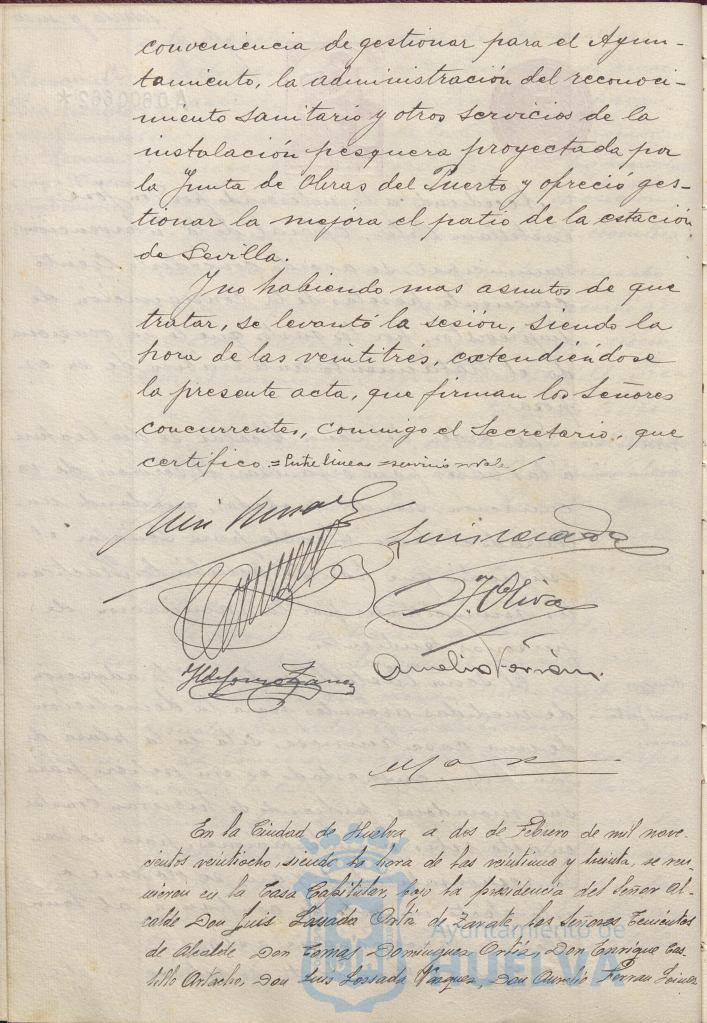 conveniencia de gestionar para el Ayun-
tamiento, la administración del reconoci-
miento sanitario y otros servicios de la
instalación pesquera proyectada por
la Junta de Obras del Puerto y ofreció ges-
tionar la mejora el patio de la estación
de Sevilla.
Y no habiendo mas asuntos de que
tratar, se levantó la sesión, siendo la
hora de las veintitrés, extendiéndose
la presente acta, que firman los Señores
concurrentes, conmigo el Secretario, que
certifico = Entre lineas = servicio = vale
J. Oliva
Aurelio
En la Ciudad de Huelva a dos de Febrero de mil nove-
cientos veintiocho, siendo la hora de las veintiuna y treinta, se reu-
nieron en la Casa Capitular, bajo la presidencia del Señor Al-
calde Don Luis Lossada Ortiz de Zarate, los Señores Tenientes
de Alcalde Don Tomas Dominguez Ortiz, Don Enrique Cas-
tillo Artacho, Don Luis Lossada Vazquez, Don Aurelio
Ayuntamiento de
HUELVA